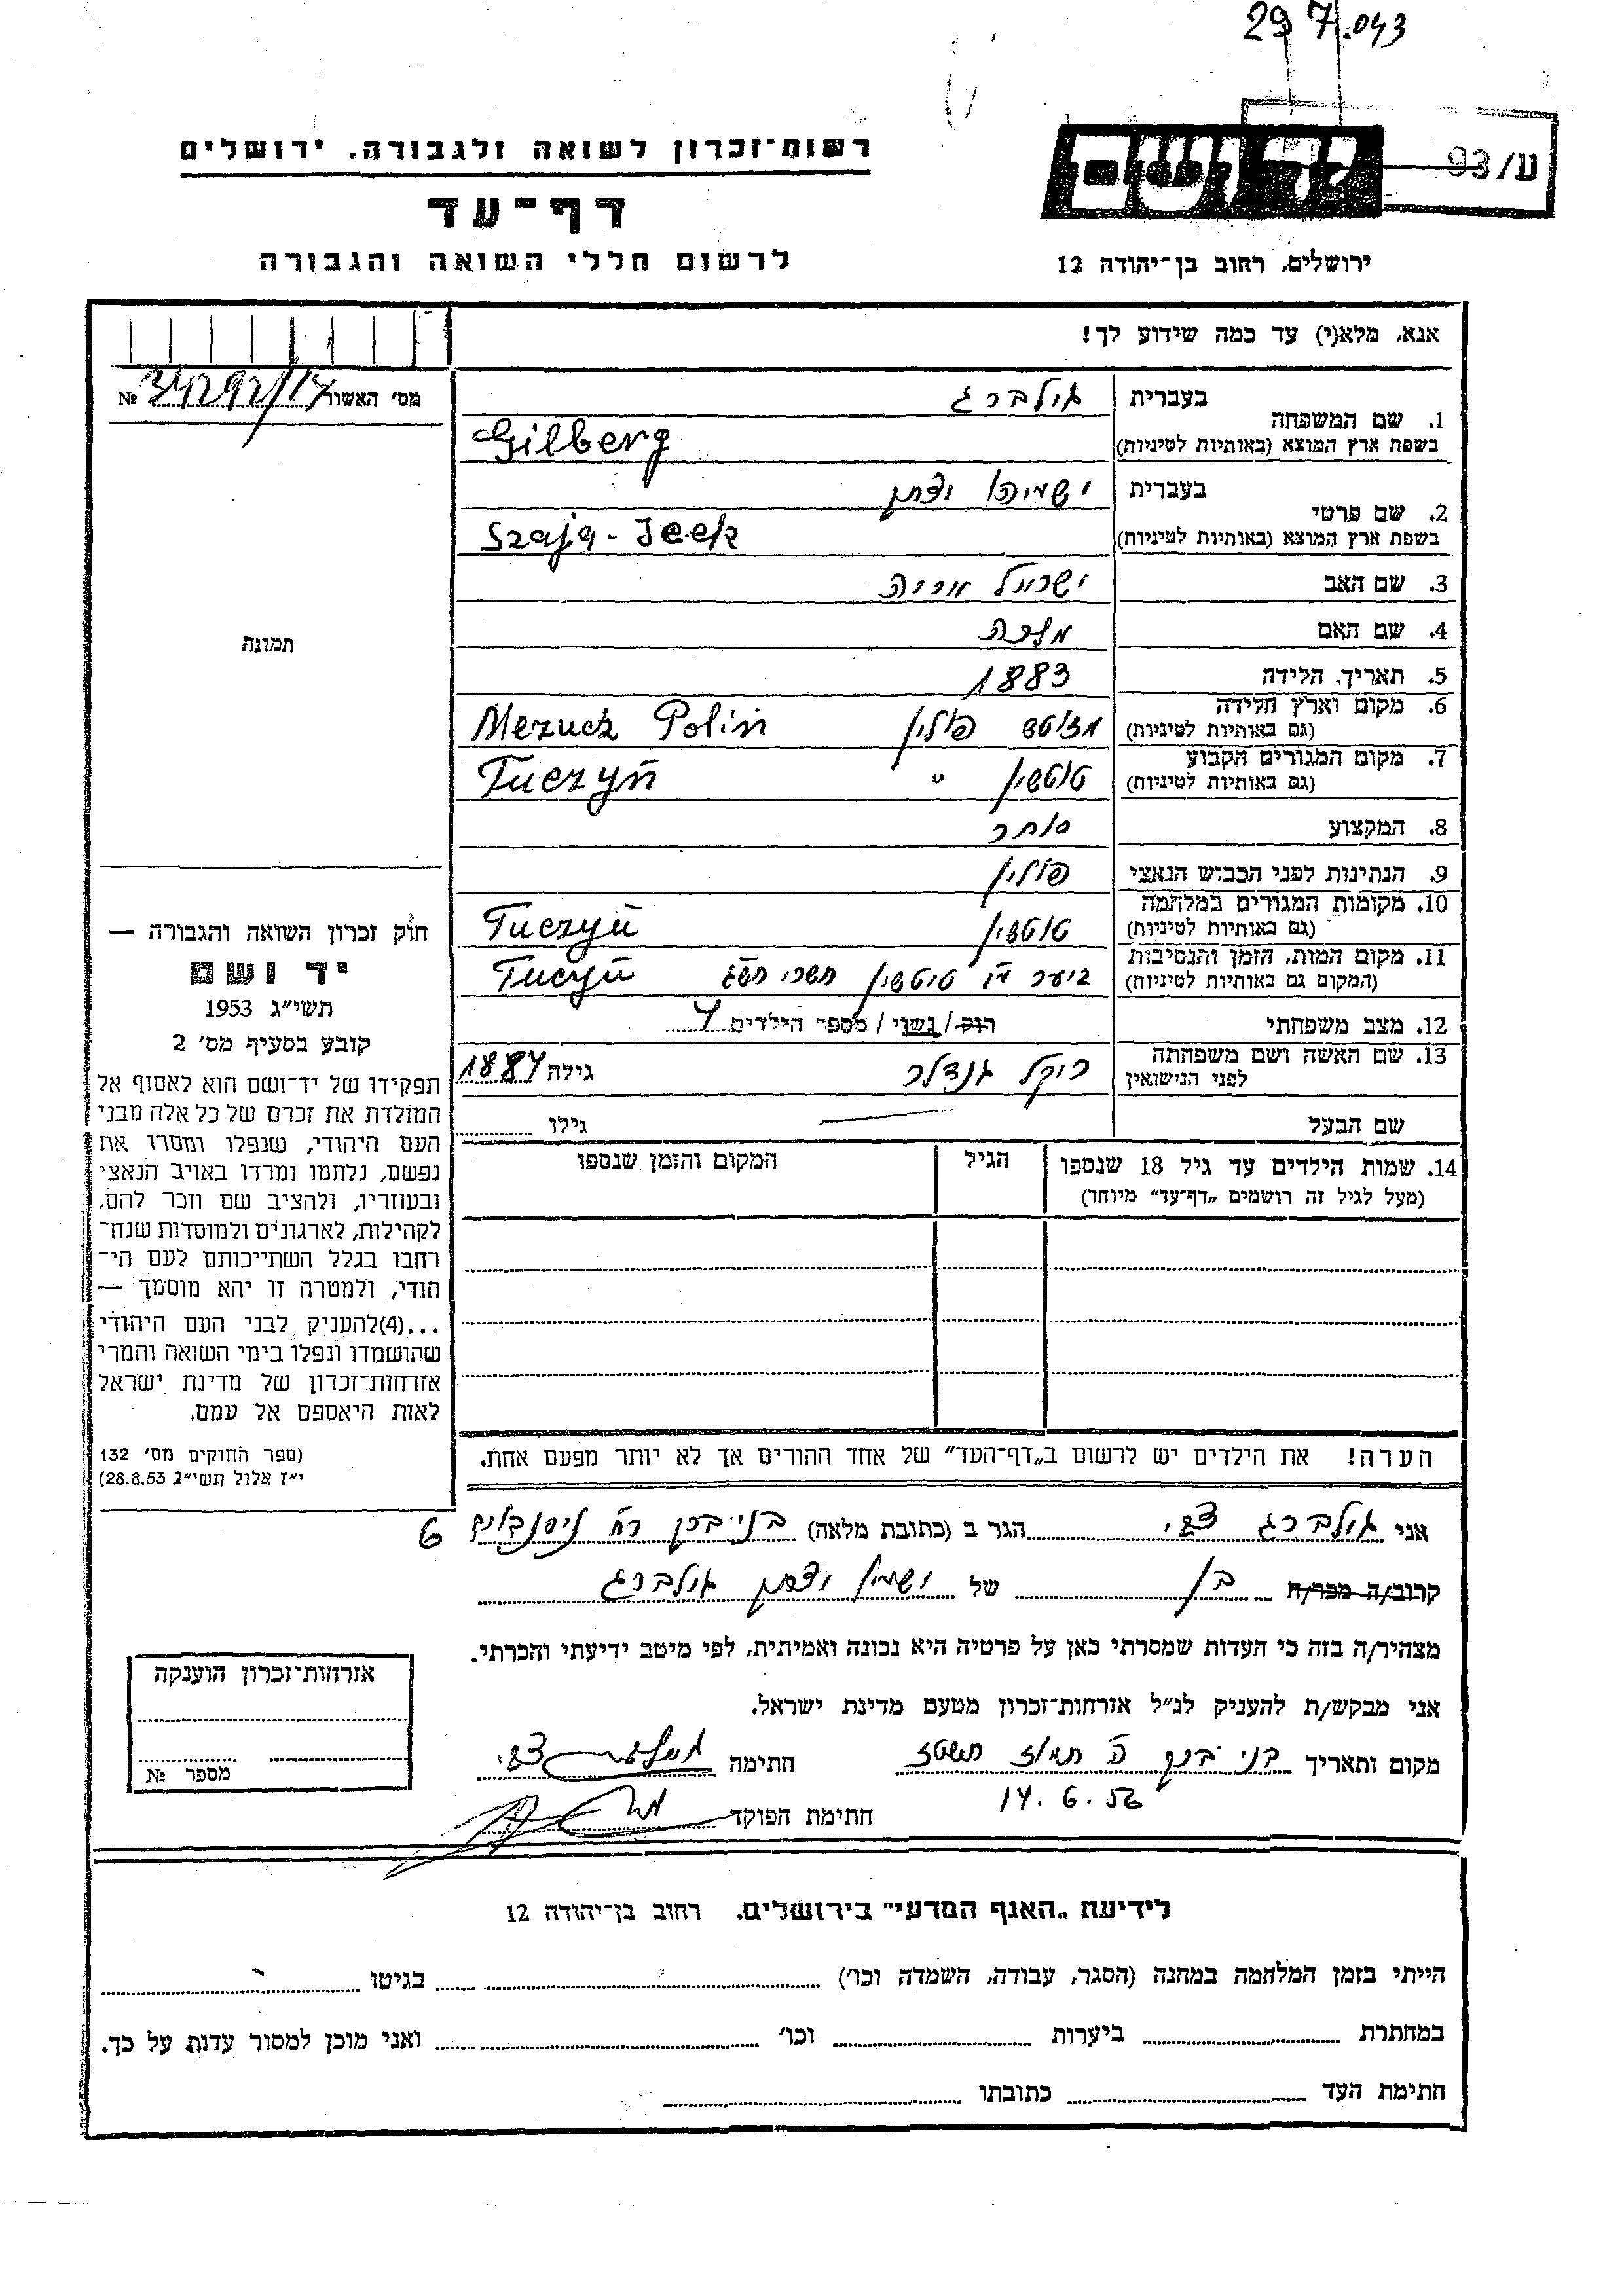 29 7.043
ע/93
יד ושם
רשות־זכרון לשואה ולגבורה, ירושלים
דף־עד
לרשום חללי השואה והגבורה
ירושלים, רחוב בן־יהודה 12
אנא, מלא(י) עד כמה שידוע לך!
מס' האשור №
תמונה
בעברית גילברג
1. שם המשפחה
בשפת ארץ המוצא (באותיות לטיניות) Gilberg
בעברית ישעיהו יצחק
2. שם פרטי
בשפת ארץ המוצא (באותיות לטיניות) Szaja-Icek
3. שם האב ישראל אריה
4. שם האם מלכה
5. תאריך הלידה 1883
6. מקום וארץ הלידה
(גם באותיות לטיניות) פולין Polin
7. מקום המגורים הקבוע
(גם באותיות לטיניות) טוטשין " Tuczyń
8. המקצוע סוחר
9. הנתינות לפני הכבוש הנאצי פולין
10. מקומות המגורים במלחמה
(גם באותיות לטיניות) טוטשין Tuczyń
11. מקום המות, הזמן והנסיבות
(המקום גם באותיות לטיניות) ביער טוטשין תשרי תש"ג Tuczyń
12. מצב משפחתי רוק/נשוי/מספר הילדים 4
13. שם האשה ושם משפחתה
לפני הנישואין רייקל גנדלר גילה 1884
שם הבעל גילו
14. שמות הילדים עד גיל 18 שנספו הגיל המקום והזמן שנספו
(מעל לגיל זה רושמים „דף־עד" מיוחד)
הערה! את הילדים יש לרשום ב„דף־העד" של אחד ההורים אך לא יותר מפעם אחת.
חוק זכרון השואה והגבורה —
יד ושם
תשי"ג 1953
קובע בסעיף מס' 2
תפקידו של יד־ושם הוא לאסוף אל
המולדת את זכרם של כל אלה מבני
העם היהודי, שנפלו ומסרו את
נפשם, נלחמו ומרדו באויב הנאצי
ובעוזריו, ולהציב שם וזכר להם,
לקהילות, לארגונים ולמוסדות שנח־
רחבו בגלל השתייכותם לעם הי־
הודי, ולמטרה זו יהא מוסמך —
...(4)להעניק לבני העם היהודי
שהושמדו ונפלו בימי השואה והמרי
אזרחות־זכרון של מדינת ישראל
לאות היאספם אל עמם.
(ספר החוקים מס' 132
י"ז אלול תשי"ג 28.8.53)
אני גילברג צבי הגר ב (כתובת מלאה) בני ברק רח' ניסנבוים 6
קרוב/ה מכר/ה בן של ישעיהו יצחק גילברג
מצהיר/ה בזה כי העדות שמסרתי כאן על פרטיה היא נכונה ואמיתית, לפי מיטב ידיעתי והכרתי.
אני מבקש/ת להעניק לנ"ל אזרחות־זכרון מטעם מדינת ישראל.
מקום ותאריך בני ברק ה' תמוז תשט"ז חתימה גילברג צבי
14.6.56
חתימת הפוקד
אזרחות־זכרון הוענקה
מספר №
לידיעת „האגף המדעי" בירושלים, רחוב בן־יהודה 12
הייתי בזמן המלחמה במחנה (הסגר, עבודה, השמדה וכו') בגיטו
במחתרת ביערות וכו' ואני מוכן למסור עדות על כך.
חתימת העד כתובתו